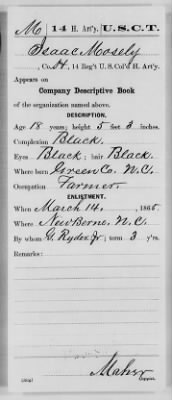 M | 14 H. Art'y. | U.S.C.T.
Isaac Mosely
, Co. H, 14 Reg't U. S. Col'd H. Art'y.
Appears on
Company Descriptive Book
of the organization named above.
DESCRIPTION.
Age 18 years; height 5 feet 3 inches.
Complexion Black.
Eyes Black; hair Black.
Where born Green Co. N.C.
Occupation Farmer.
ENLISTMENT.
When March 14, 1865.
Where New Berne, N.C.
By whom G. Ryder Jr; term 3 y'rs.
Remarks:
Maher
Copyist.